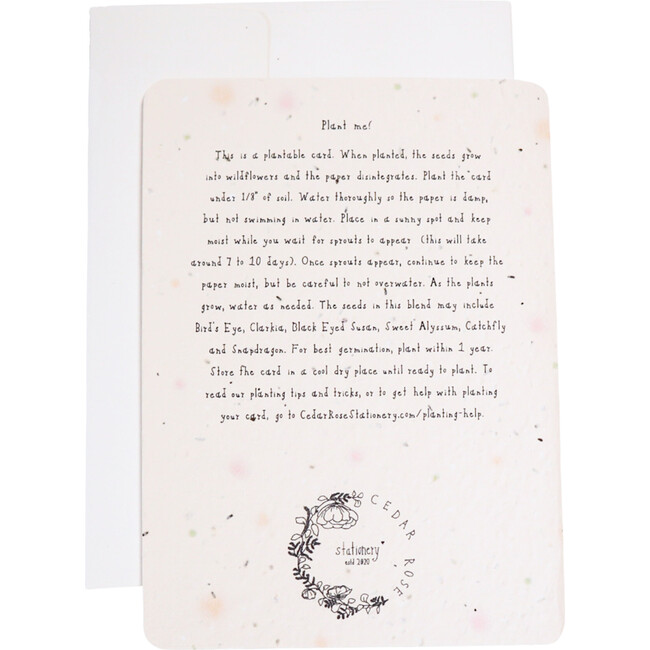 Plant me!
This is a plantable card. When planted, the seeds grow
into wildflowers and the paper disintegrates. Plant the card
under 1/8" of soil. Water thoroughly so the paper is damp,
but not swimming in water. Place in a sunny spot and keep
moist while you wait for sprouts to appear (this will take
around 7 to 10 days). Once sprouts appear, continue to keep the
paper moist, but be careful to not overwater. As the plants
grow, water as needed. The seeds in this blend may include
Bird's Eye, Clarkia, Black Eyed Susan, Sweet Alyssum, Catchfly
and Snapdragon. For best germination, plant within 1 year.
Store the card in a cool dry place until ready to plant. To
read our planting tips and tricks, or to get help with planting
your card, go to CedarRoseStationery.com/planting-help.
CEDAR ROSE
stationery
estd 2020